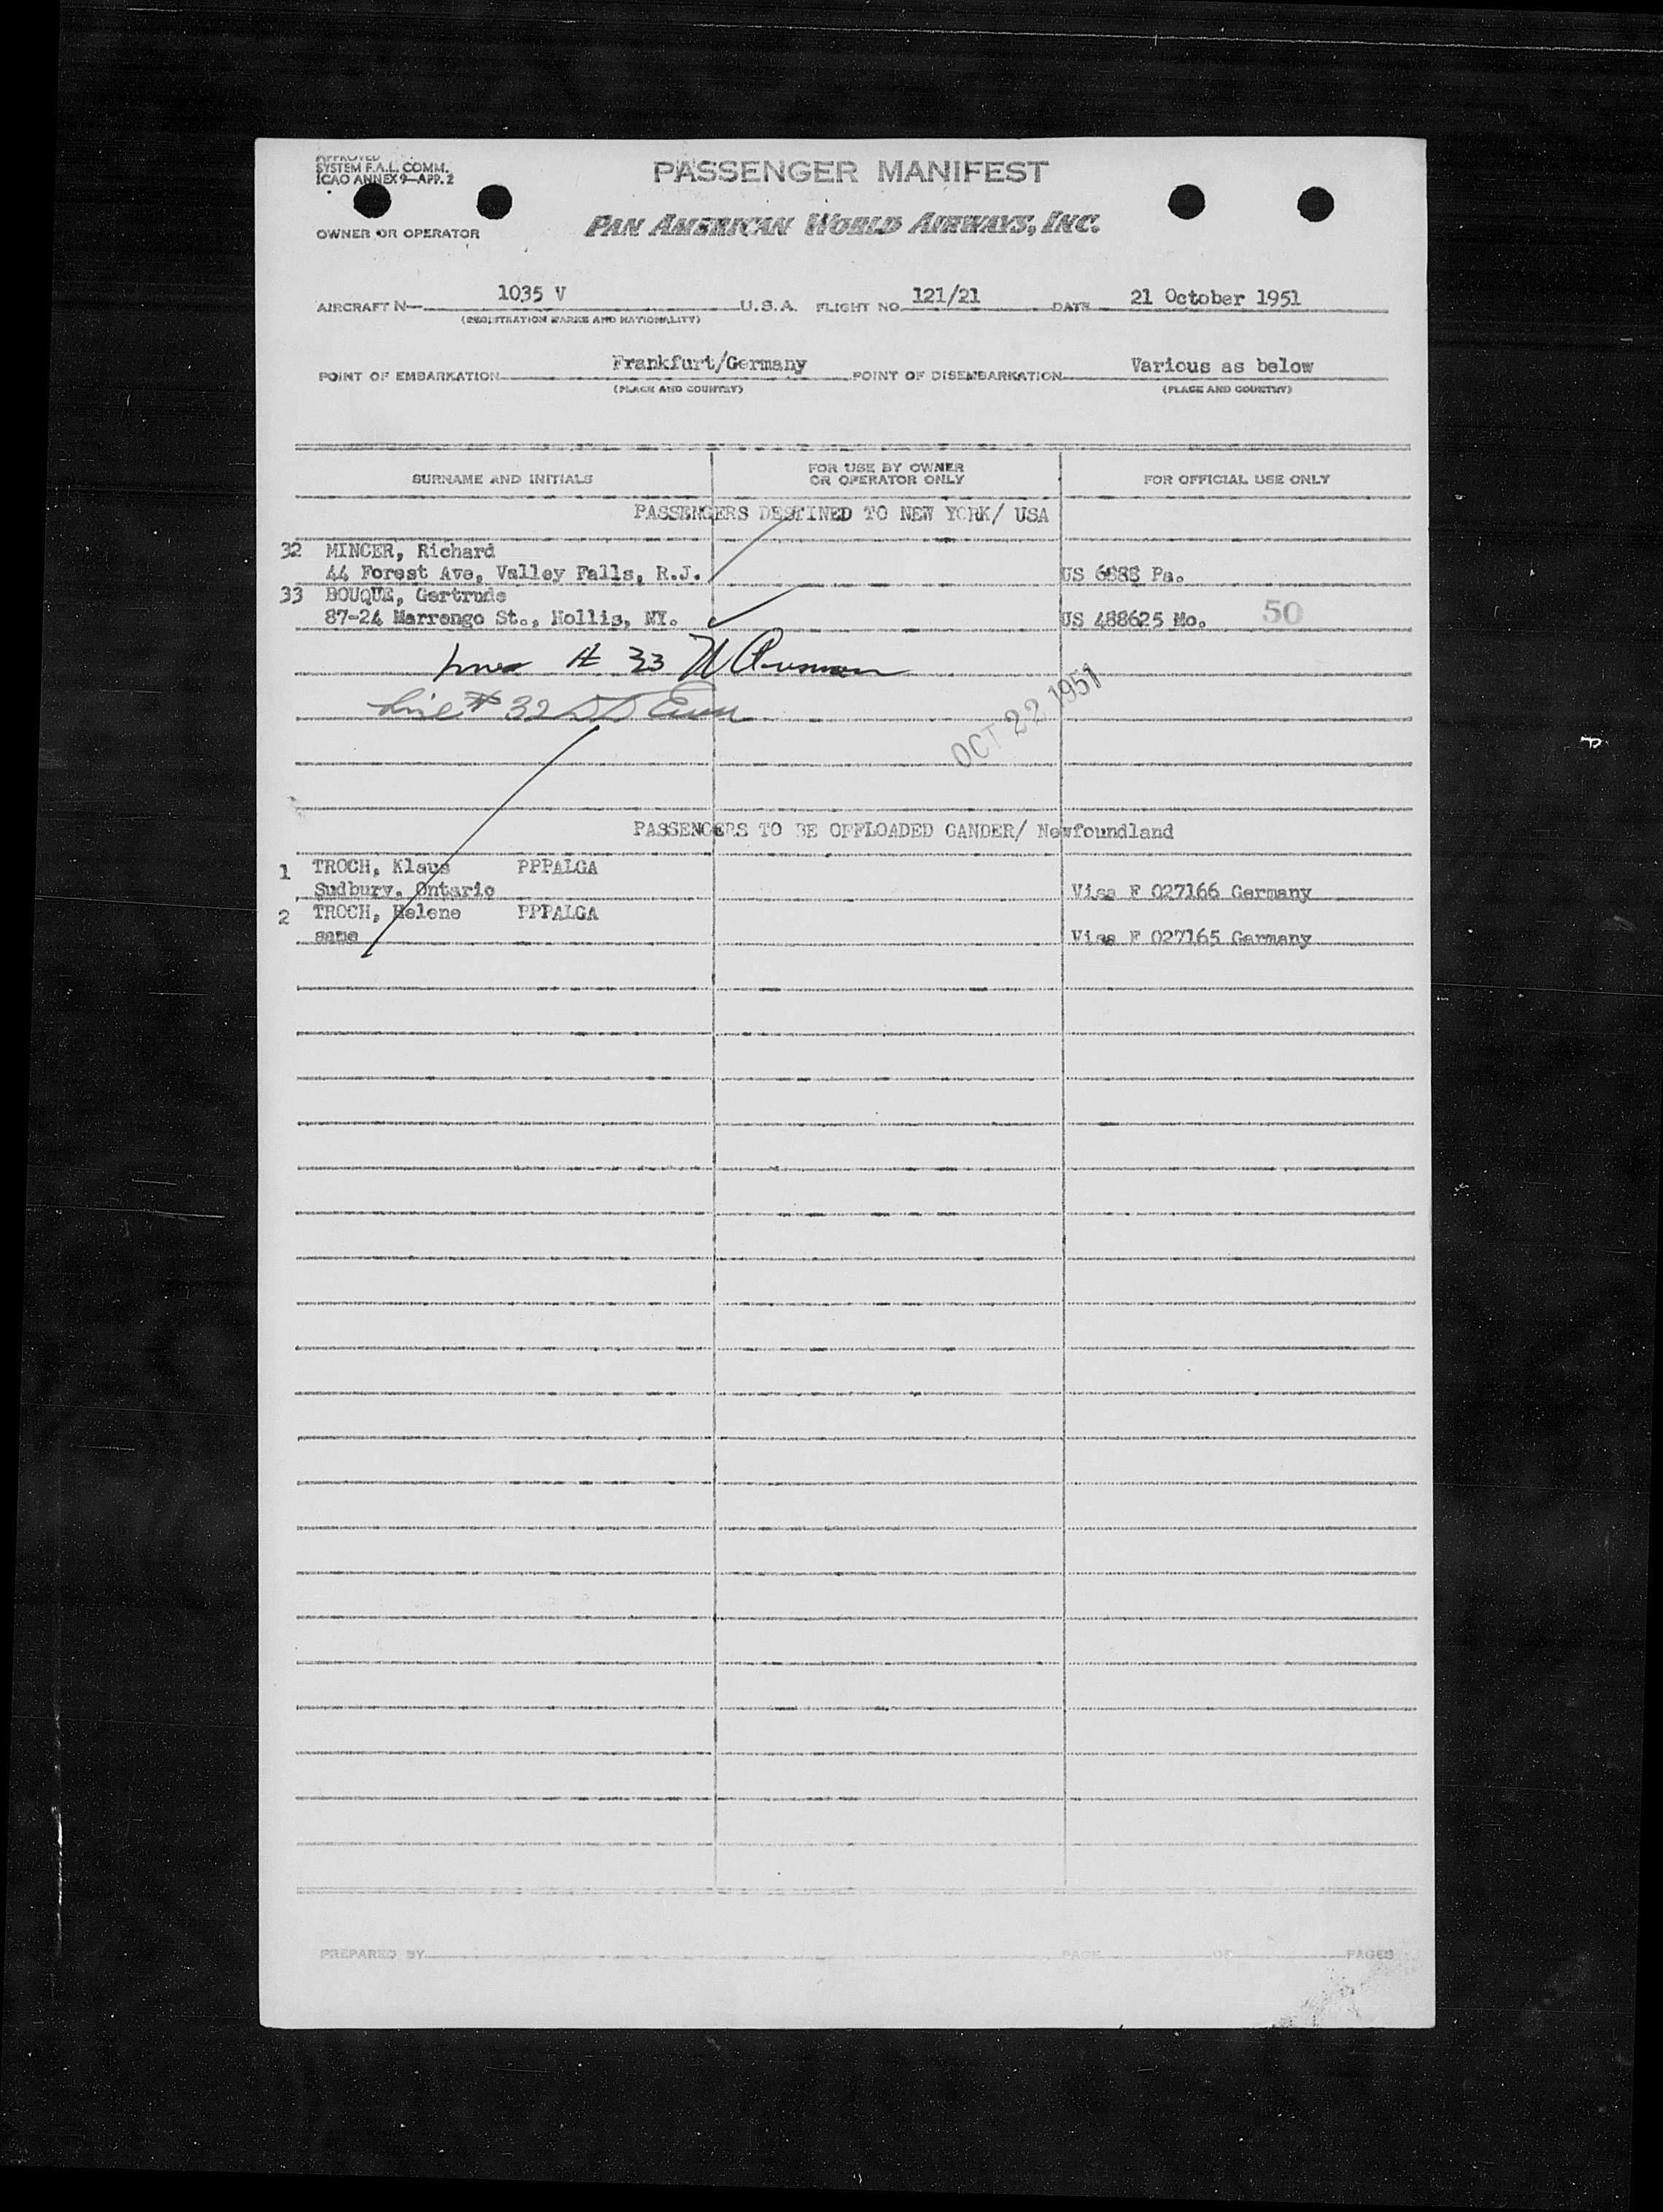 APPROVED
SYSTEM F.A.L. COMM.
ICAO ANNEX 9—APP. 2
PASSENGER MANIFEST
OWNER OR OPERATOR
PAN AMERICAN WORLD AIRWAYS, INC.
AIRCRAFT N— 1035 V U.S.A. FLIGHT NO. 121/21 DATE 21 October 1951
(REGISTRATION MARKS AND NATIONALITY)
POINT OF EMBARKATION Frankfurt/Germany POINT OF DISEMBARKATION Various as below
(PLACE AND COUNTRY) (PLACE AND COUNTRY)
SURNAME AND INITIALS FOR USE BY OWNER OR OPERATOR ONLY FOR OFFICIAL USE ONLY
PASSENGERS DESTINED TO NEW YORK/ USA
32 MINCER, Richard
44 Forest Ave, Valley Falls, R.J. US Pa.
33 BOUQUE, Gertrude
87-24 Marrengo St., Hollis, NY. US 488625 Mo. 50
# 33
Line # 32
OCT 22 1951
PASSENGERS TO BE OFFLOADED GANDER/ Newfoundland
1 TROCH, Klaus PPPALGA
Sudbury, Ontario Visa F 027166 Germany
2 TROCH, Helene PPPALGA
same Visa F 027165 Germany
PREPARED BY PAGE OF PAGES